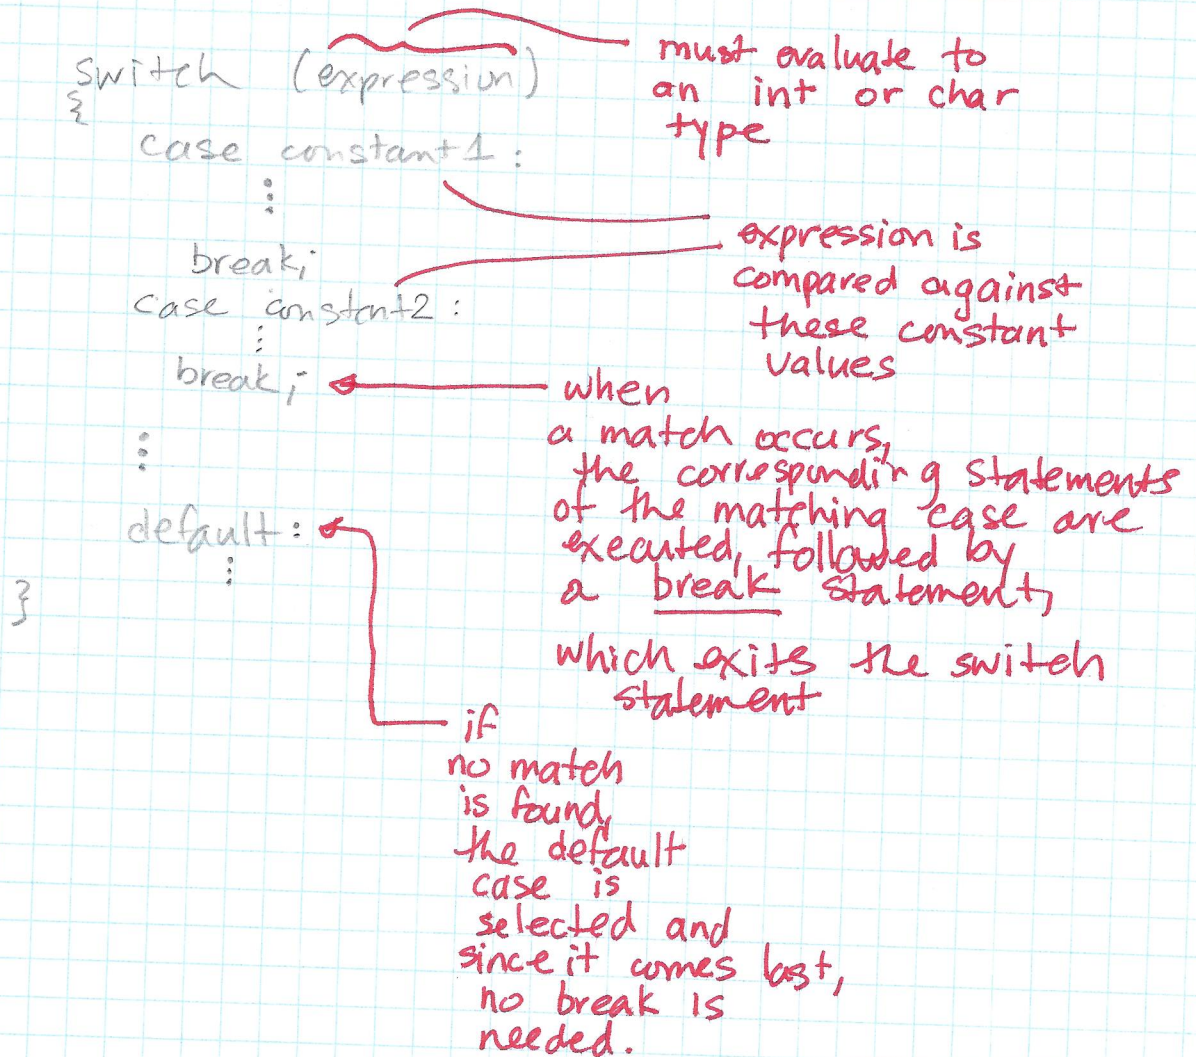 switch (expression)
{
case constant1 :
⋮
break;
case constant2 :
⋮
break;
⋮
default :
⋮
}
must evaluate to
an int or char
type
expression is
compared against
these constant
values
when
a match occurs,
the corresponding statements
of the matching case are
executed, followed by
a break statement,
which exits the switch
statement
if
no match
is found,
the default
case is
selected and
since it comes last,
no break is
needed.